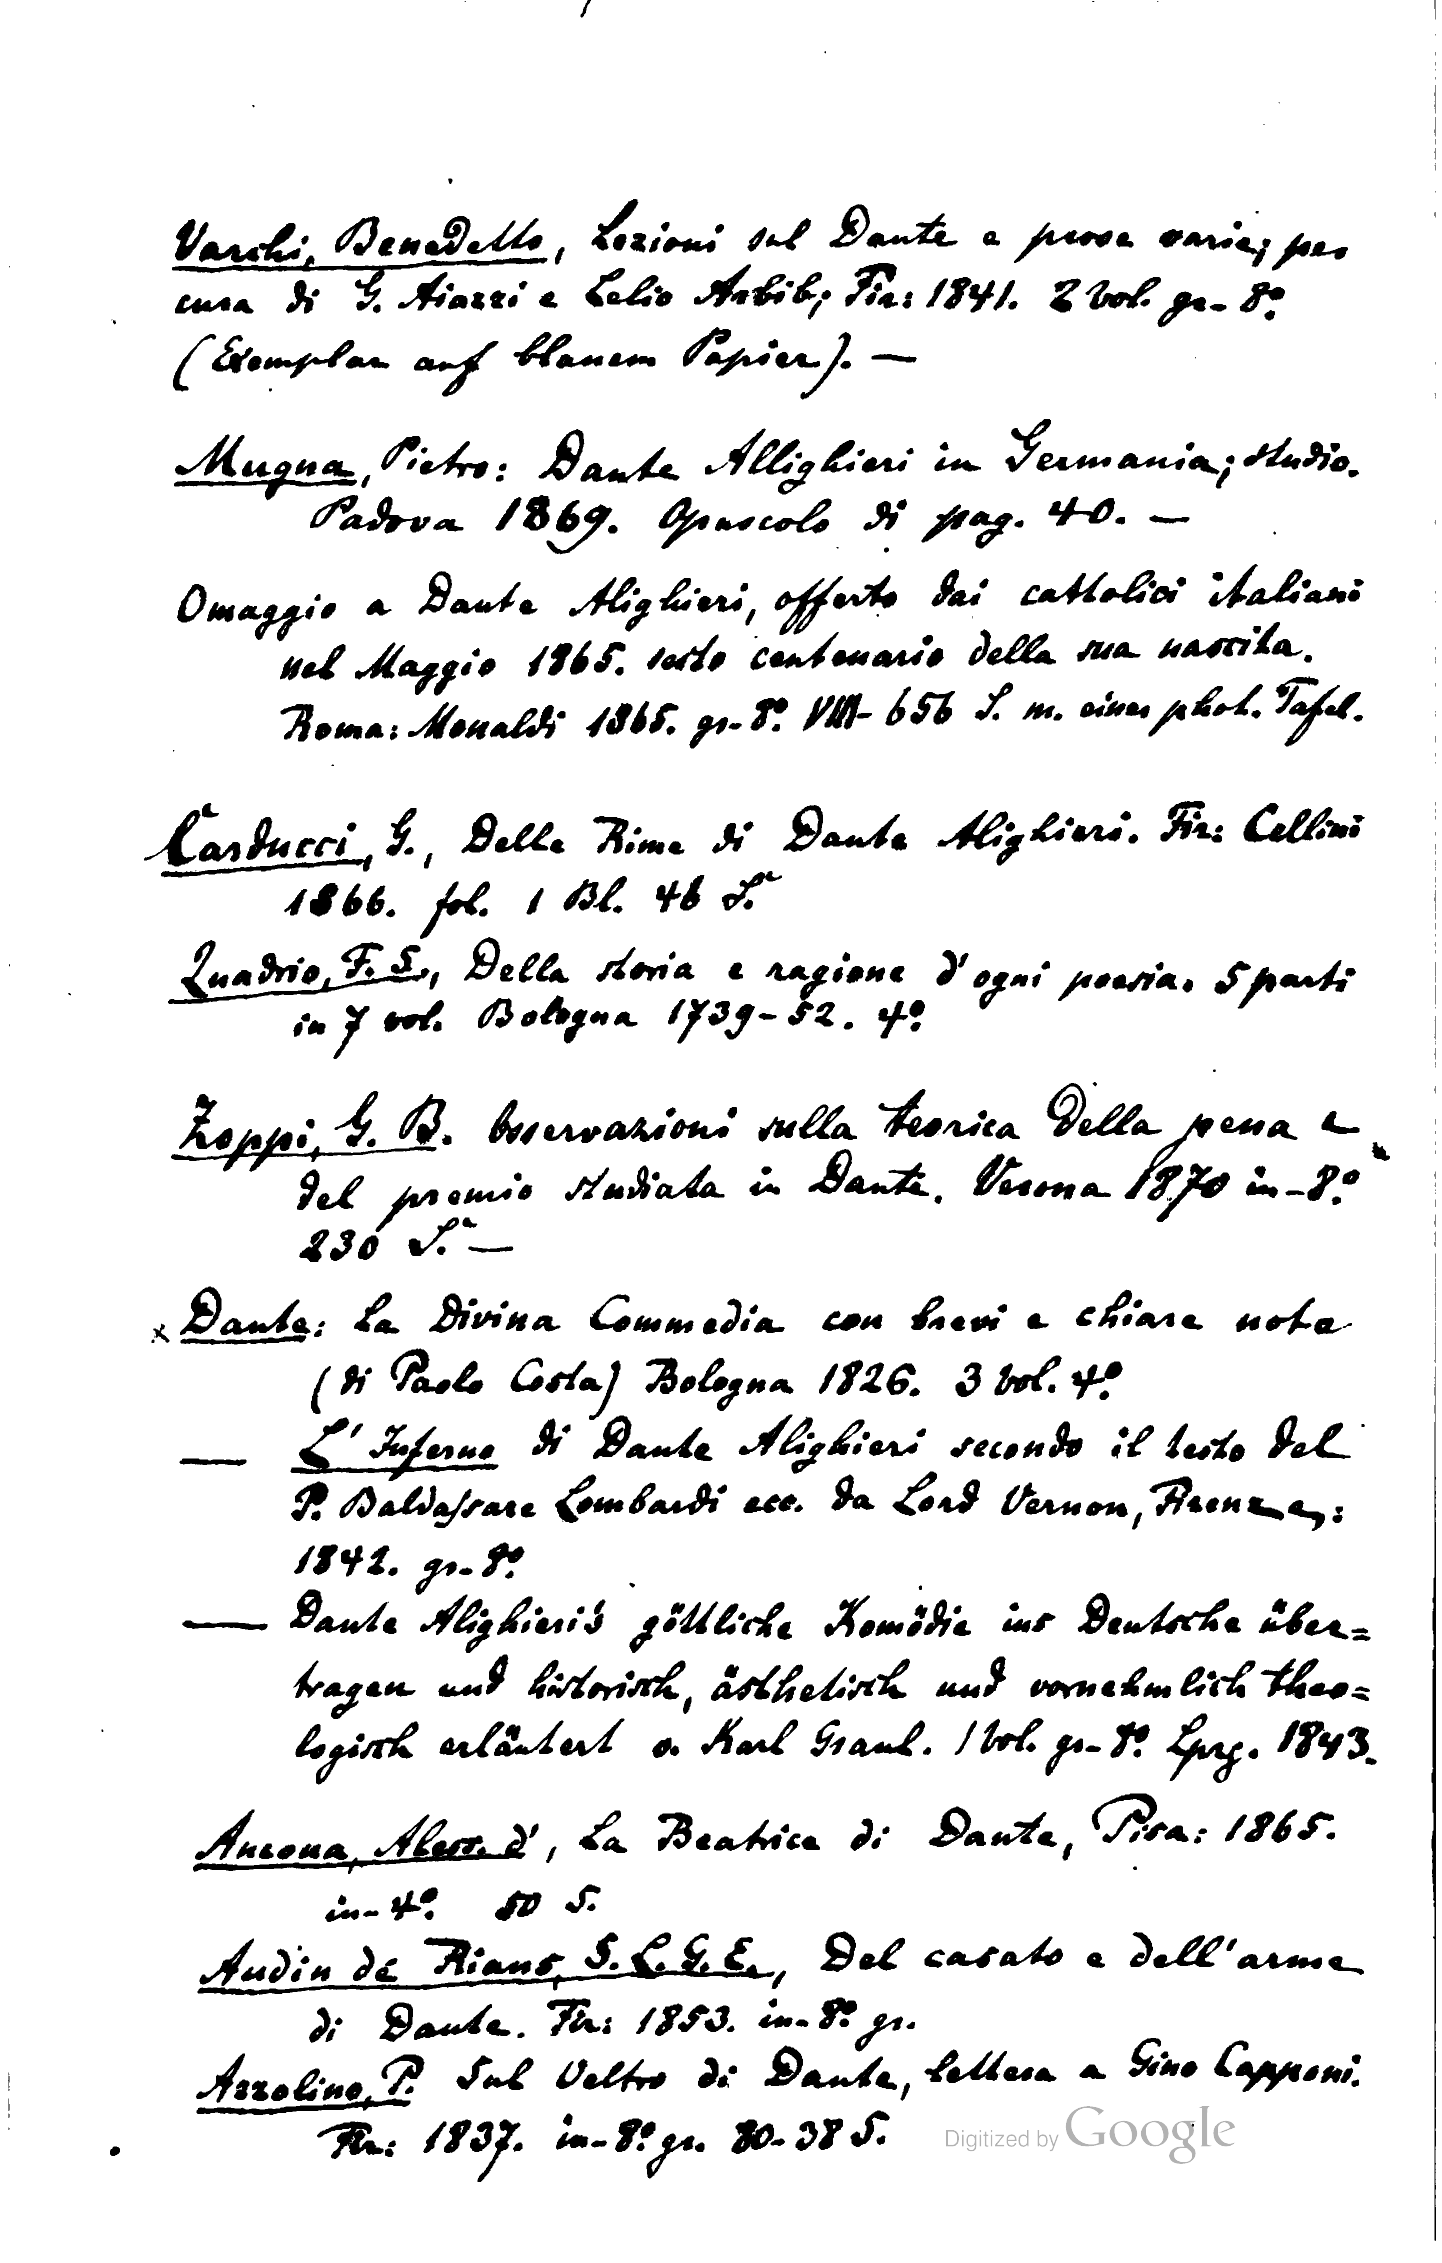 Varchi, Benedetto, Lezioni sul Dante e prose varie; per
cura di G. Aiazzi e Lelio Arbib; Fir: 1841. 2 vol. gr- 8º.
(Exemplar auf blauem Papier). —
Mugna, Pietro: Dante Allighieri in Germania; studio.
Padova 1869. Opuscolo di pag. 40. —
Omaggio a Dante Alighieri, offerto dai cattolici italiani
nel Maggio 1865. sesto centenario della sua nascita.
Roma: Monaldi 1865. gr- 8º. VIII- 656 S. m. einer phot. Tafel.
Carducci, G., Delle Rime di Dante Alighieri. Fir: Cellini
1866. fol. 1 Bl. 46 S.
Quadrio, F. S., Della storia e ragione d'ogni poesia. 5 parti
in 7 vol. Bologna 1739-52. 4º.
Zoppi, G. B. Osservazioni sulla teorica della pena e
del premio studiata in Dante. Verona 1870 in-8º.
230 S. —
x Dante: La Divina Commedia con brevi e chiare note
(di Paolo Costa) Bologna 1826. 3 vol. 4º.
— L'Inferno di Dante Alighieri secondo il testo del
P. Baldassare Lombardi ecc. da Lord Vernon, Firenze:
1842. gr- 8º.
— Dante Alighieri's göttliche Komödie ins Deutsche über=
tragen und historisch, ästhetisch und vornehmlich theo=
logisch erläutert v. Karl Graul. 1 vol. gr- 8º. Lpzg. 1843.
Ancona, Aless. d', La Beatrice di Dante, Pisa: 1865.
in- 4º. 50 S.
Audin de Rians, S. L. G. E., Del casato e dell'arme
di Dante. Fir: 1853. in- 8º. gr.
Azzolino, P. Sul Veltro di Dante, lettera a Gino Capponi.
Fir: 1837. in- 8º. gr. 38 S.
Digitized by Google